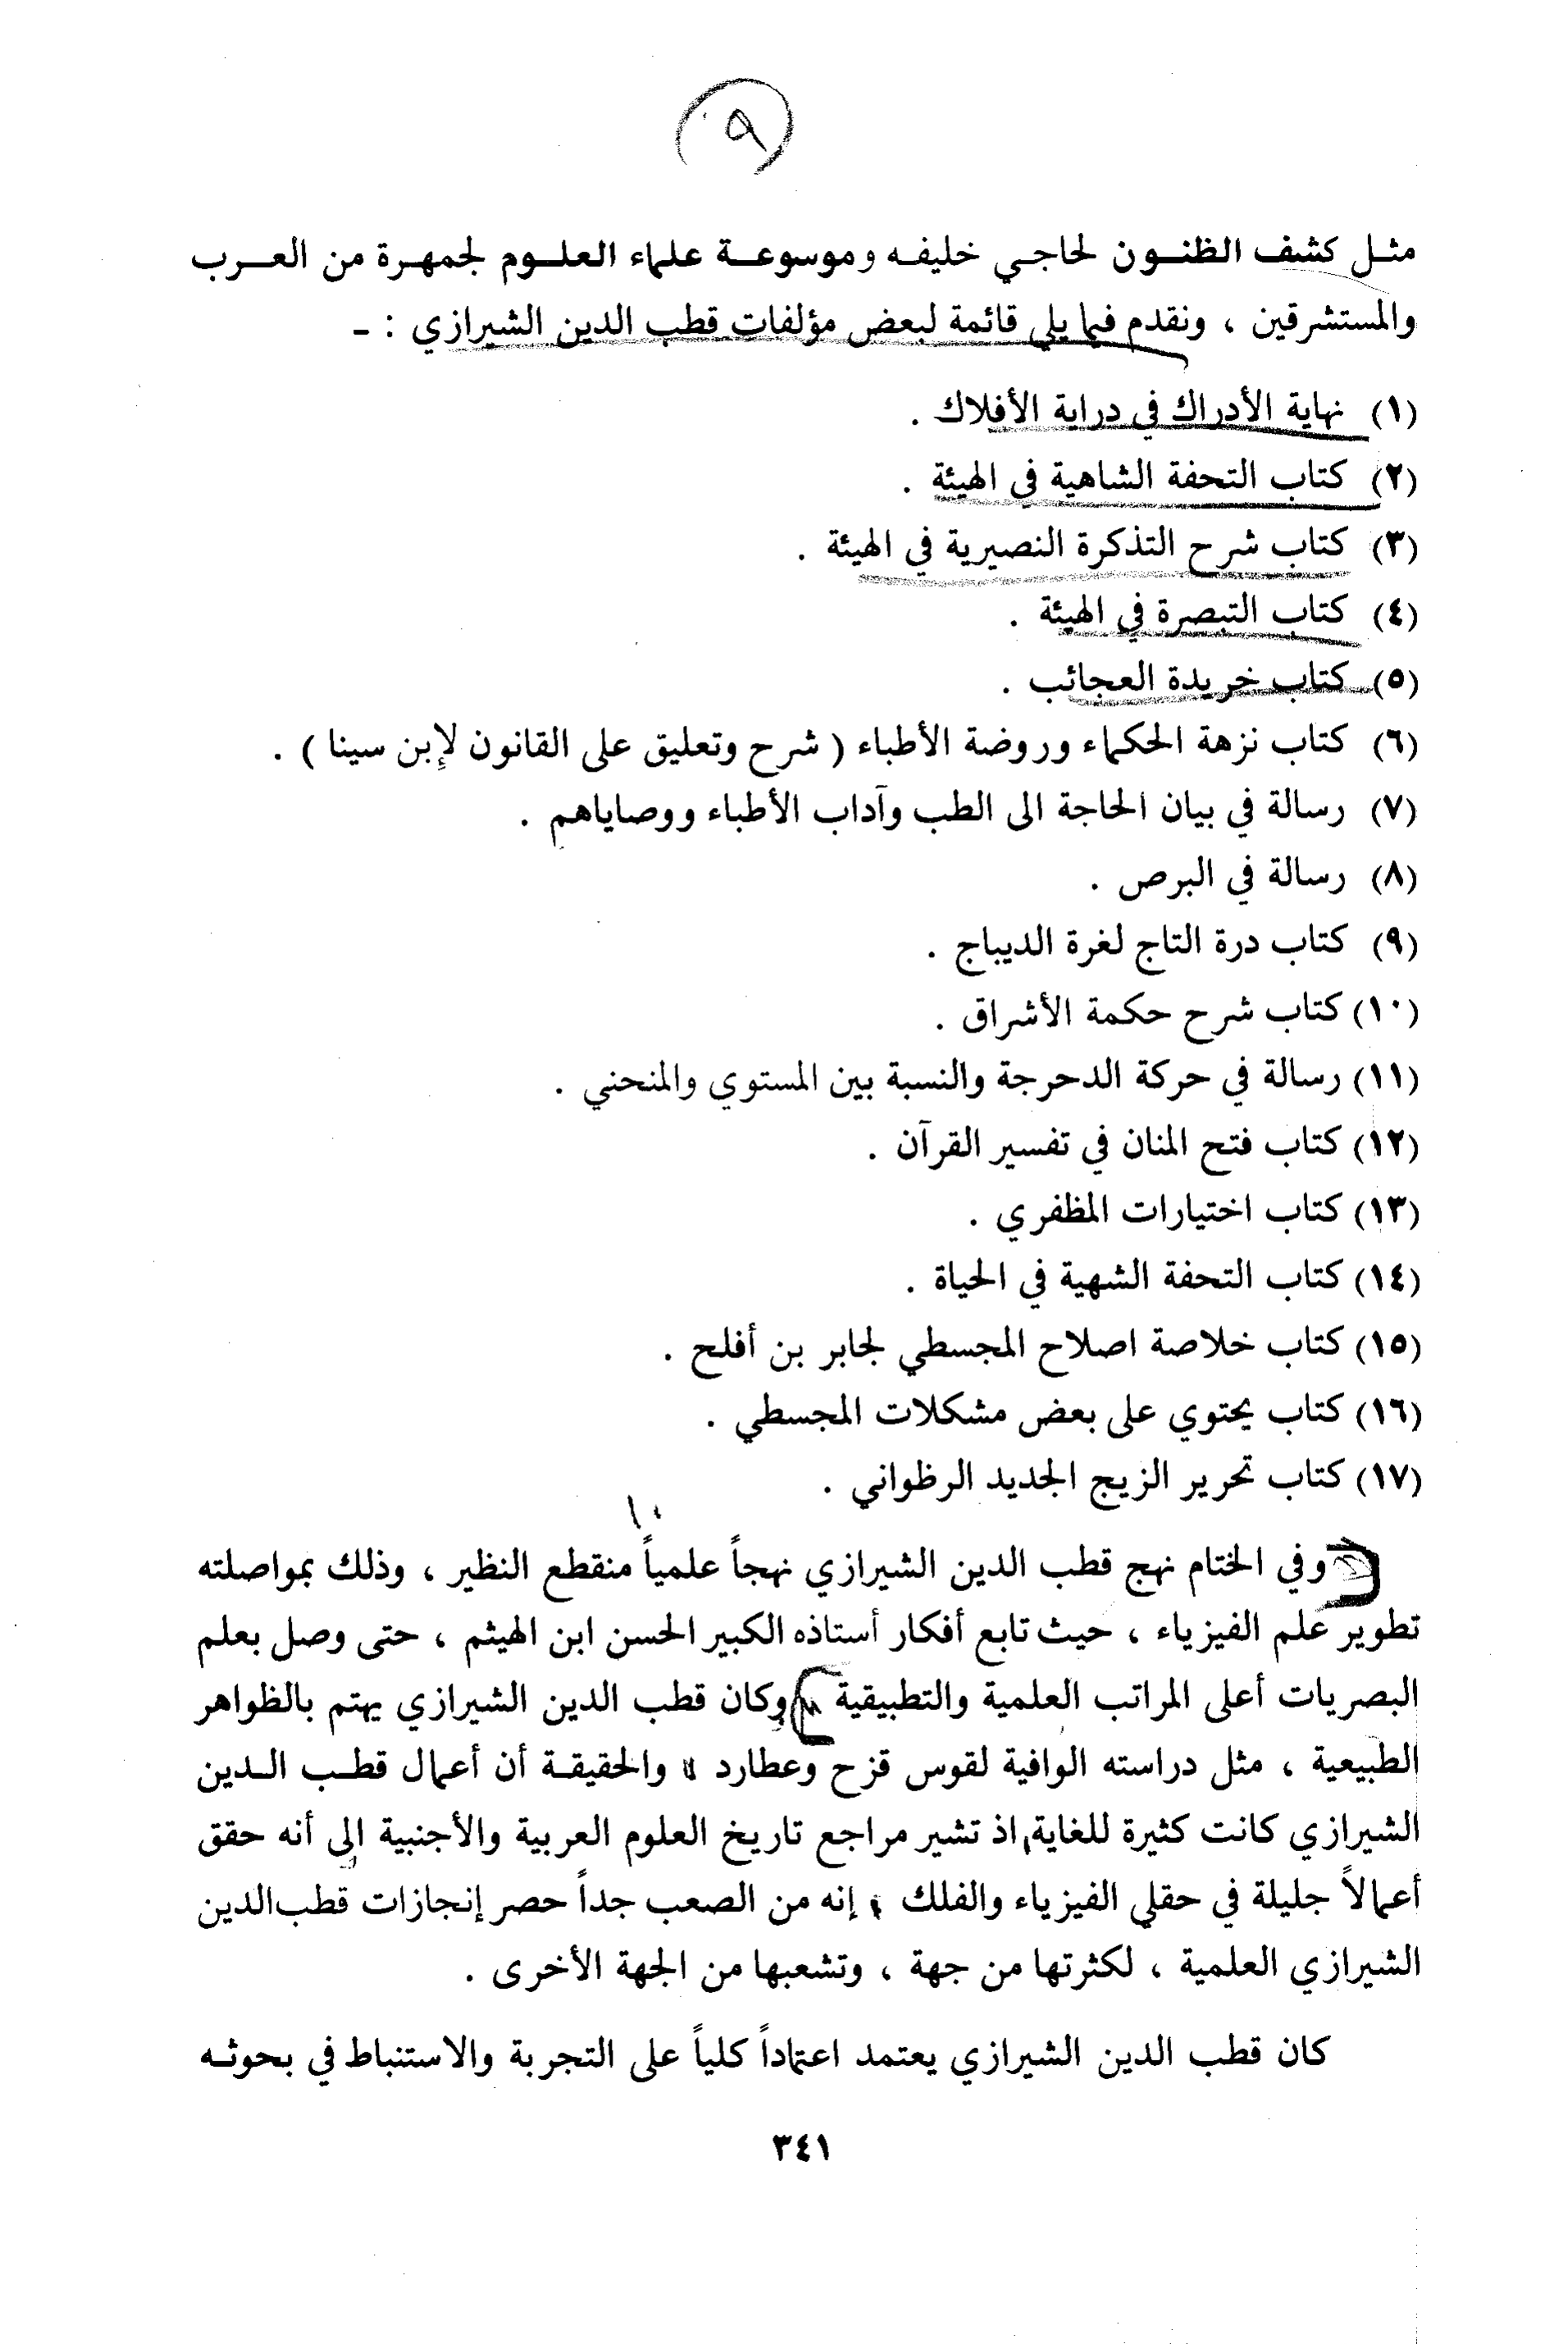 ٩
مثل كشف الظنون لحاجي خليفه وموسوعة علماء العلوم لجمهرة من العرب
والمستشرقين ، ونقدم فيما يلي قائمة لبعض مؤلفات قطب الدين الشيرازي : ـ
(١) نهاية الأدراك في دراية الأفلاك .
(٢) كتاب التحفة الشاهية في الهيئة .
(٣) كتاب شرح التذكرة النصيرية في الهيئة .
(٤) كتاب التبصرة في الهيئة .
(٥) كتاب خريدة العجائب .
(٦) كتاب نزهة الحكماء وروضة الأطباء ( شرح وتعليق على القانون لإبن سينا ) .
(٧) رسالة في بيان الحاجة الى الطب وآداب الأطباء ووصاياهم .
(٨) رسالة في البرص .
(٩) كتاب درة التاج لغرة الديباج .
(١٠) كتاب شرح حكمة الأشراق .
(١١) رسالة في حركة الدحرجة والنسبة بين المستوي والمنحني .
(١٢) كتاب فتح المنان في تفسير القرآن .
(١٣) كتاب اختيارات المظفري .
(١٤) كتاب التحفة الشهية في الحياة .
(١٥) كتاب خلاصة اصلاح المجسطي لجابر بن أفلح .
(١٦) كتاب يحتوي على بعض مشكلات المجسطي .
(١٧) كتاب تحرير الزيج الجديد الرظواني .
١٠
وفي الختام نهج قطب الدين الشيرازي نهجاً علمياً منقطع النظير ، وذلك بمواصلته
تطوير علم الفيزياء ، حيث تابع أفكار أستاذه الكبير الحسن ابن الهيثم ، حتى وصل بعلم
البصريات أعلى المراتب العلمية والتطبيقية وكان قطب الدين الشيرازي يهتم بالظواهر
الطبيعية ، مثل دراسته الوافية لقوس قزح وعطارد والحقيقة أن أعمال قطب الدين
الشيرازي كانت كثيرة للغاية, اذ تشير مراجع تاريخ العلوم العربية والأجنبية الى أنه حقق
أعمالاً جليلة في حقلي الفيزياء والفلك إنه من الصعب جداً حصر إنجازات قطب الدين
الشيرازي العلمية ، لكثرتها من جهة ، وتشعبها من الجهة الأخرى .
كان قطب الدين الشيرازي يعتمد اعتماداً كلياً على التجربة والاستنباط في بحوثه
٣٤١